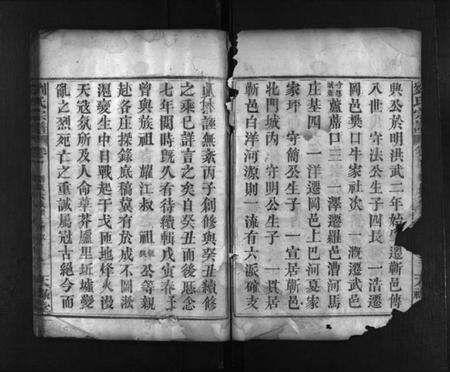 興公於明洪武二年始
遷蘄邑傳
八世 守法公生子四長 一浩遷
岡邑樊口牛家社次 一溉遷武邑
蘆蓆口三 一澤遷羅邑漕河馬
庄基四 一洋遷岡邑上巴河夏家
家坪 守簡公生子 一宣居蘄邑
北門城内 守明公生子 一貫居
蘄邑白洋河源則一流有六派確支
眞諜誣無紊丙子創修與癸丑續修
之乘已詳言之矣自癸丑而後歷念
七年間時旣久有待續輯戊寅春予
曾與族祖 耀江叔 祖 公等親
赴各庄採錄底稿冀有於成不圖漱
滬變生中日戰起干戈匝地烽火漫
天寇氛所及人命草莽廬里坵墟變
亂之烈死亡之重誠屬冠古絕今而